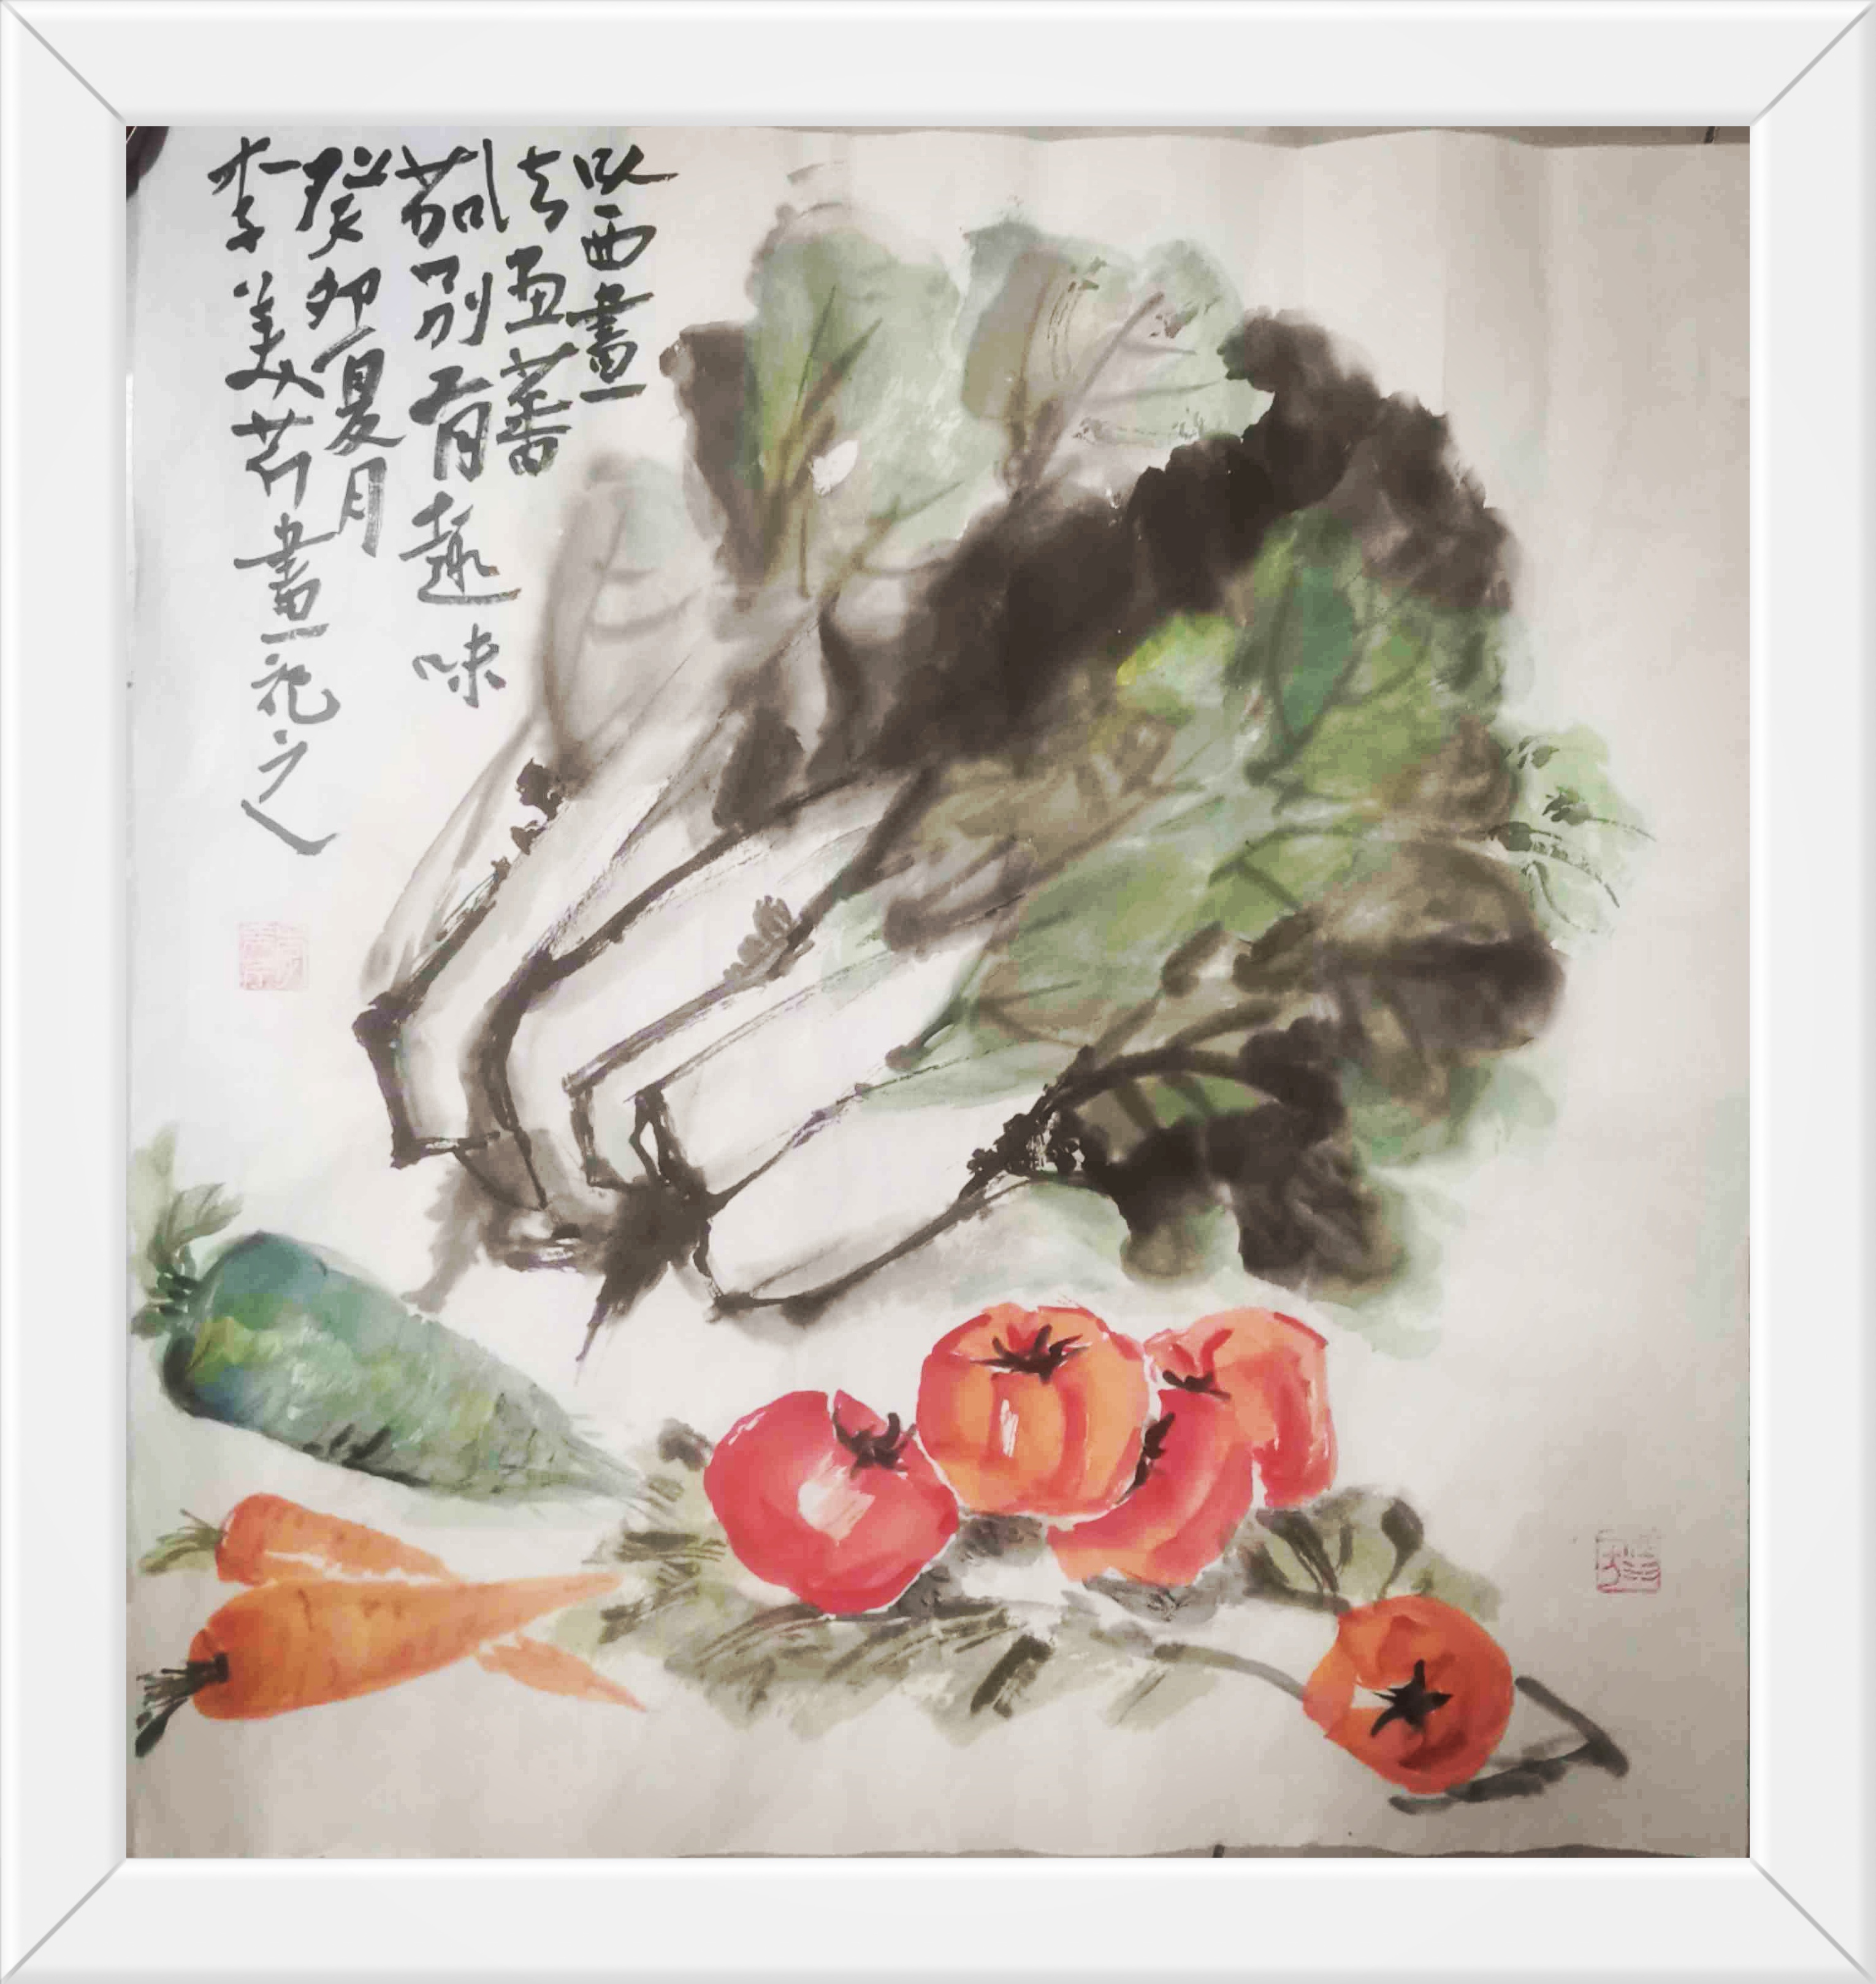 以西畫
法画蕃
茄別有趣味
癸卯夏月
李美芹畫記之